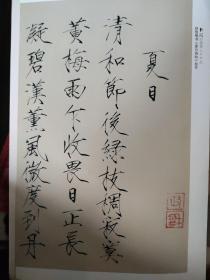 夏日
清和節後綠枝稠寂寞
黃梅雨乍收畏日正長
凝碧漢薰風微度到丹